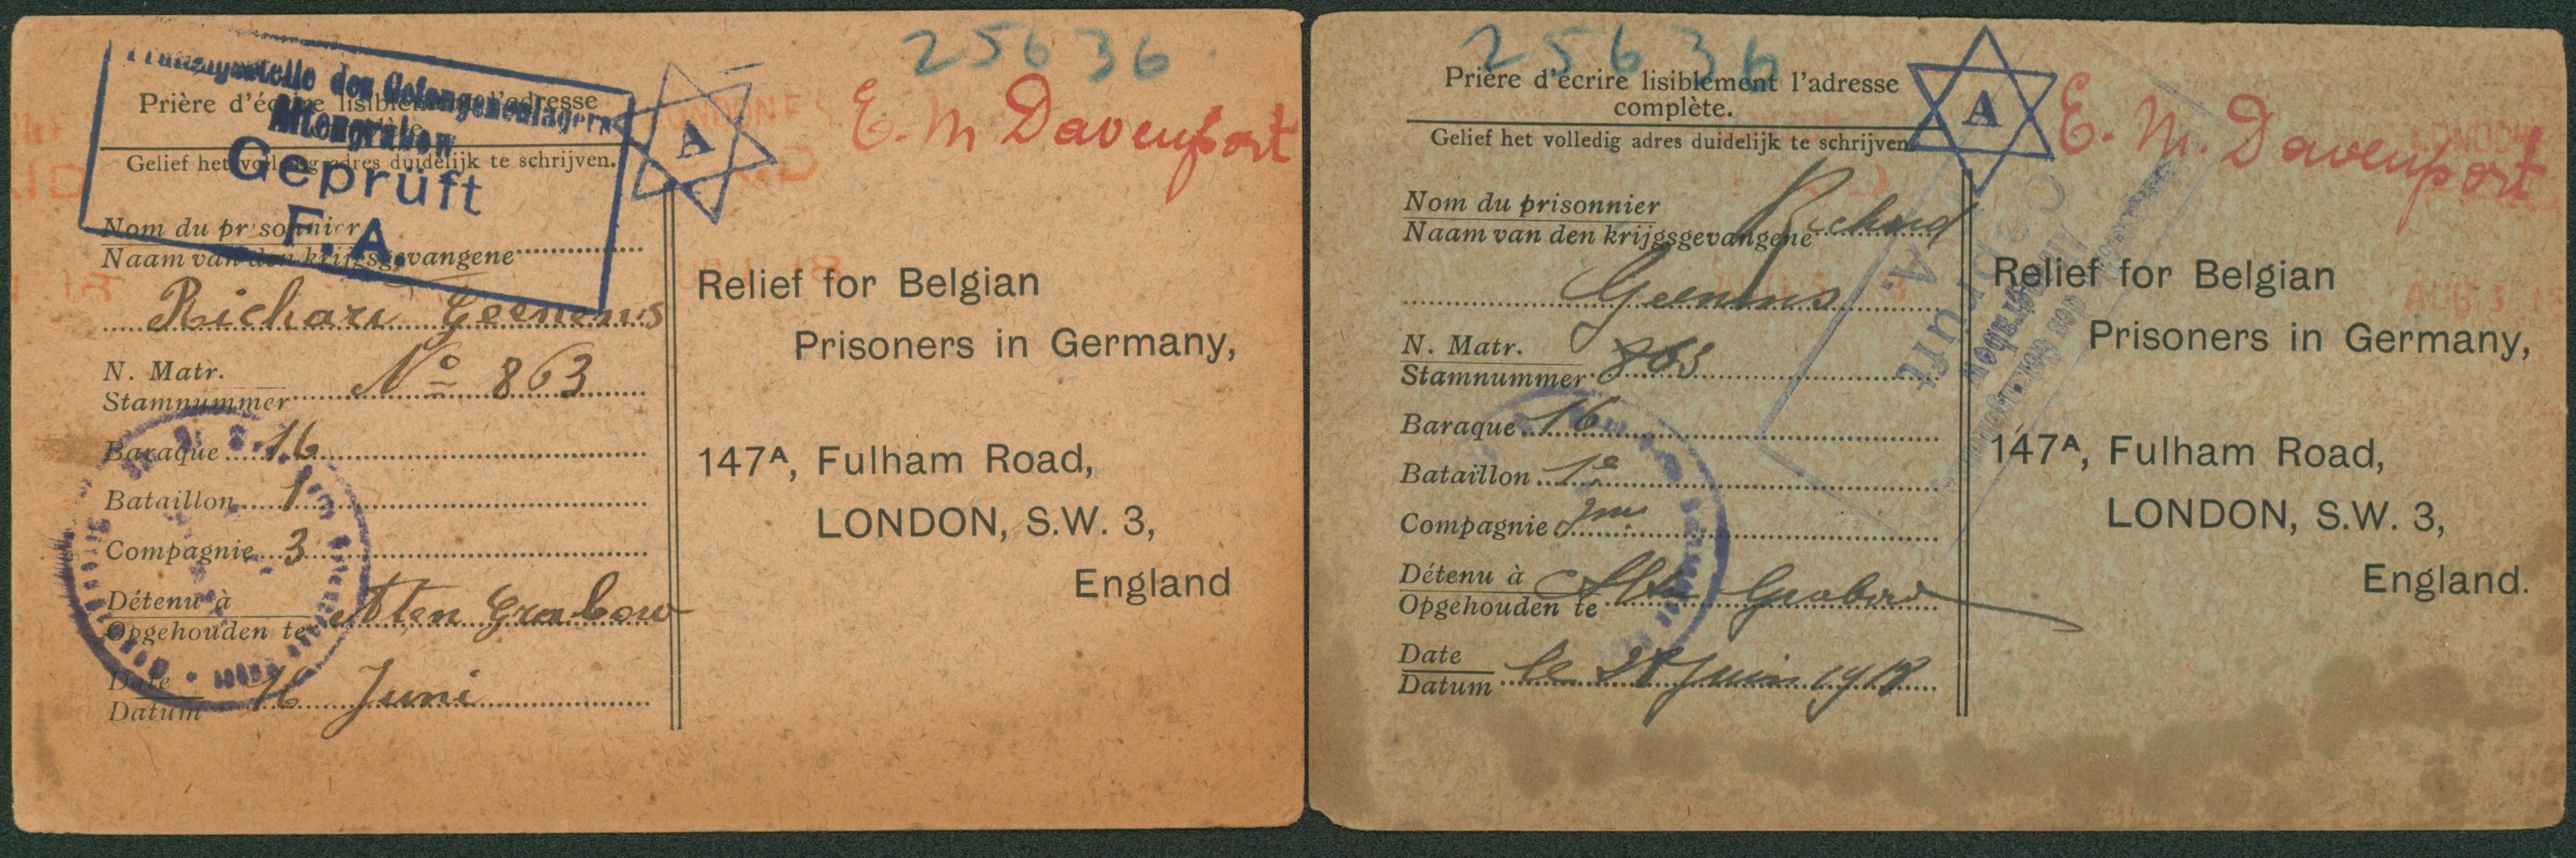 25636
E. M Davenport
des Gefangenenlagers
Altengrabow
Geprüft
F. A
A
Prière d'écrire lisiblement l'adresse
complète.
Gelief het volledig adres duidelijk te schrijven.
Nom du prisonnier
Naam van den krijgsgevangene
Richard Geenens
N. Matr.
Stamnummer No 863
Baraque 16
Bataillon 1
Compagnie 3
Détenu à
Opgehouden te Alten Grabow
Date
Datum 16 Juni
Relief for Belgian
Prisoners in Germany,
147A, Fulham Road,
LONDON, S.W. 3,
England
25636
E. M. Davenport
A
Prière d'écrire lisiblement l'adresse
complète.
Gelief het volledig adres duidelijk te schrijven
Nom du prisonnier
Naam van den krijgsgevangene Richard
Geenens
N. Matr.
Stamnummer 863
Baraque 16
Bataillon 1e
Compagnie 3me
Détenu à
Opgehouden te Alten Grabow
Date
Datum le Juin 1918
Geprüft
F. A.
Relief for Belgian
Prisoners in Germany,
147A, Fulham Road,
LONDON, S.W. 3,
England.